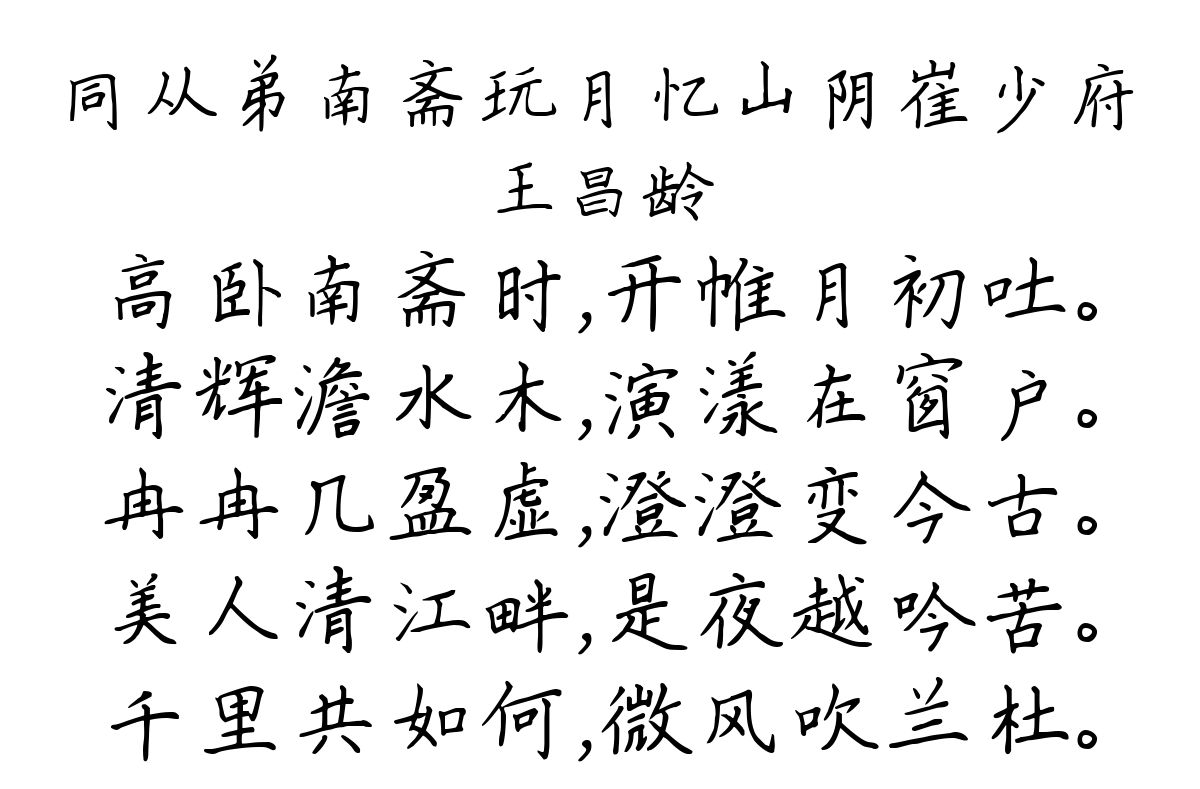 同从弟南斋玩月忆山阴崔少府
王昌龄
高卧南斋时,开帷月初吐。
清辉澹水木,演漾在窗户。
冉冉几盈虚,澄澄变今古。
美人清江畔,是夜越吟苦。
千里共如何,微风吹兰杜。